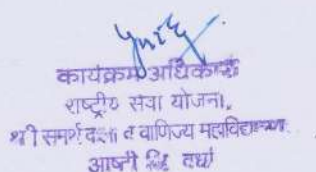 कार्यक्रम अधिकारी
राष्ट्रीय सेवा योजना,
श्री समर्थ कला व वाणिज्य महाविद्यालय
आष्टी जि वर्धा